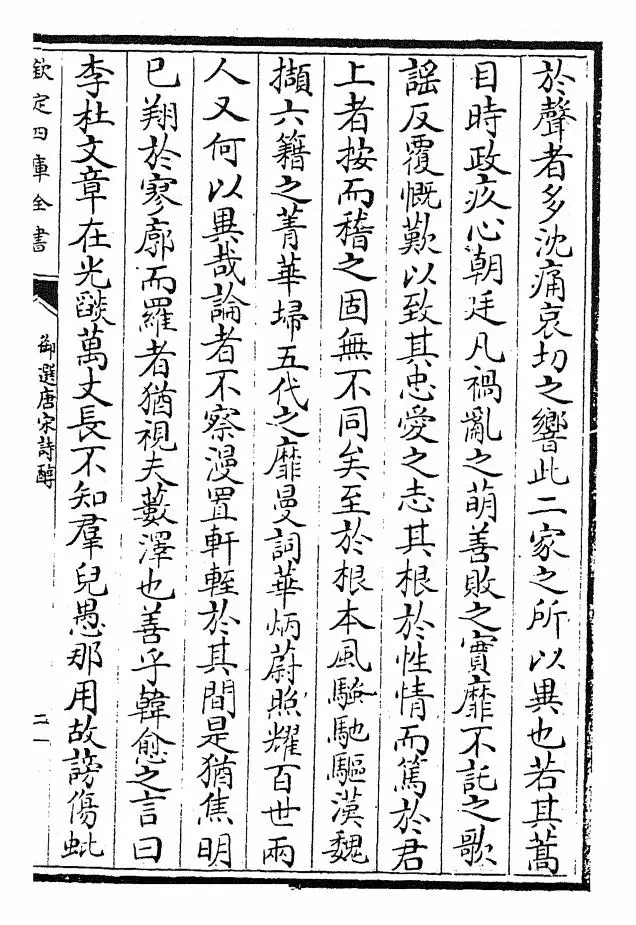 於聲者多沈痛哀切之響此二家之所以異也若其蒿
目時政疚心朝廷凡禍亂之萌善敗之實靡不託之歌
謡反覆慨歎以致其忠愛之志其根於性情而篤於君
上者按而稽之固無不同矣至於根本風騷馳驅漢魏
擷六籍之菁華埽五代之靡曼詞華炳蔚照耀百世兩
人又何以異哉論者不察漫置軒輊於其間是猶焦明
已翔於寥廓而羅者猶視夫藪澤也善乎韓愈之言曰
李杜文章在光燄萬丈長不知羣兒愚那用故謗傷蚍
欽定四庫全書
御選唐宋詩醇
二